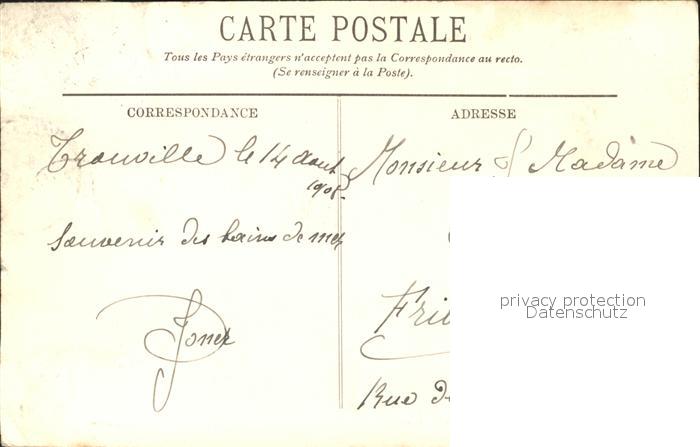 CARTE POSTALE
Tous les Pays étrangers n'acceptent pas la Correspondance au recto.
(Se renseigner à la Poste).
CORRESPONDANCE
Trouville le 14 aout
souvenir des bains de mer
ADRESSE
Monsieur & Madame
privacy protection
Datenschutz
Rue